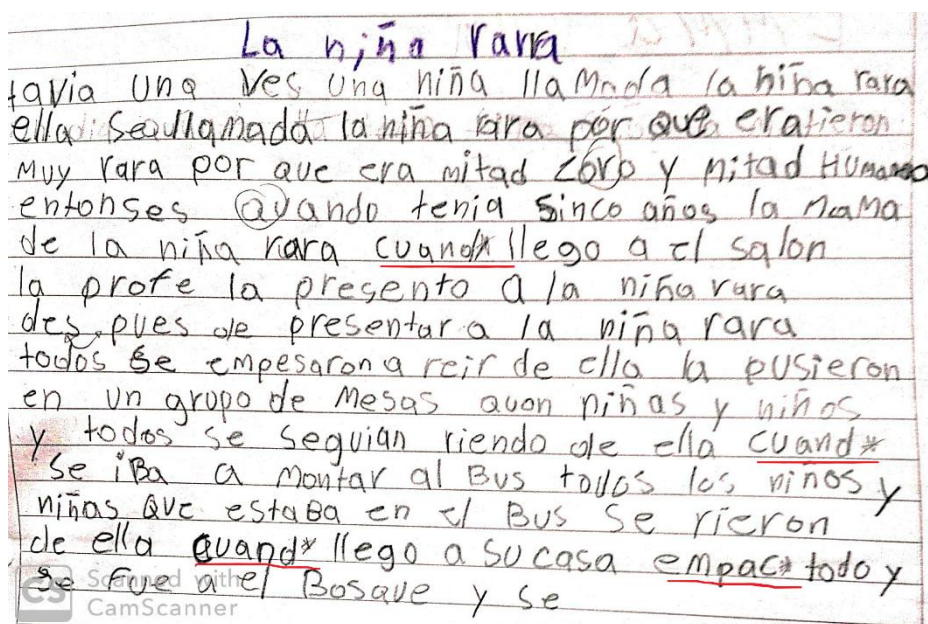 La niña rarra
tavia una ves una niña llamada la niña rara
ella seallamada la niña rara por que eratieron
Muy rara por que era mitad zorro y mitad Humano
entonses quando tenia sinco años la mama
de la niña rara cuand* llego a el salon
la profe la presento a la niña rara
des.pues de presentar a la niña rara
todos se empesaron a reir de ella la pusieron
en un grupo de Mesas quon niñas y niños
y todos se seguian riendo de ella cuand*
se iBa a Montar al Bus todos los niños y
niñas que estaBa en el Bus se rieron
de ella quand* llego a su casa empac* todo y
se fue a el Bosque y se
CS Scanned with
CamScanner